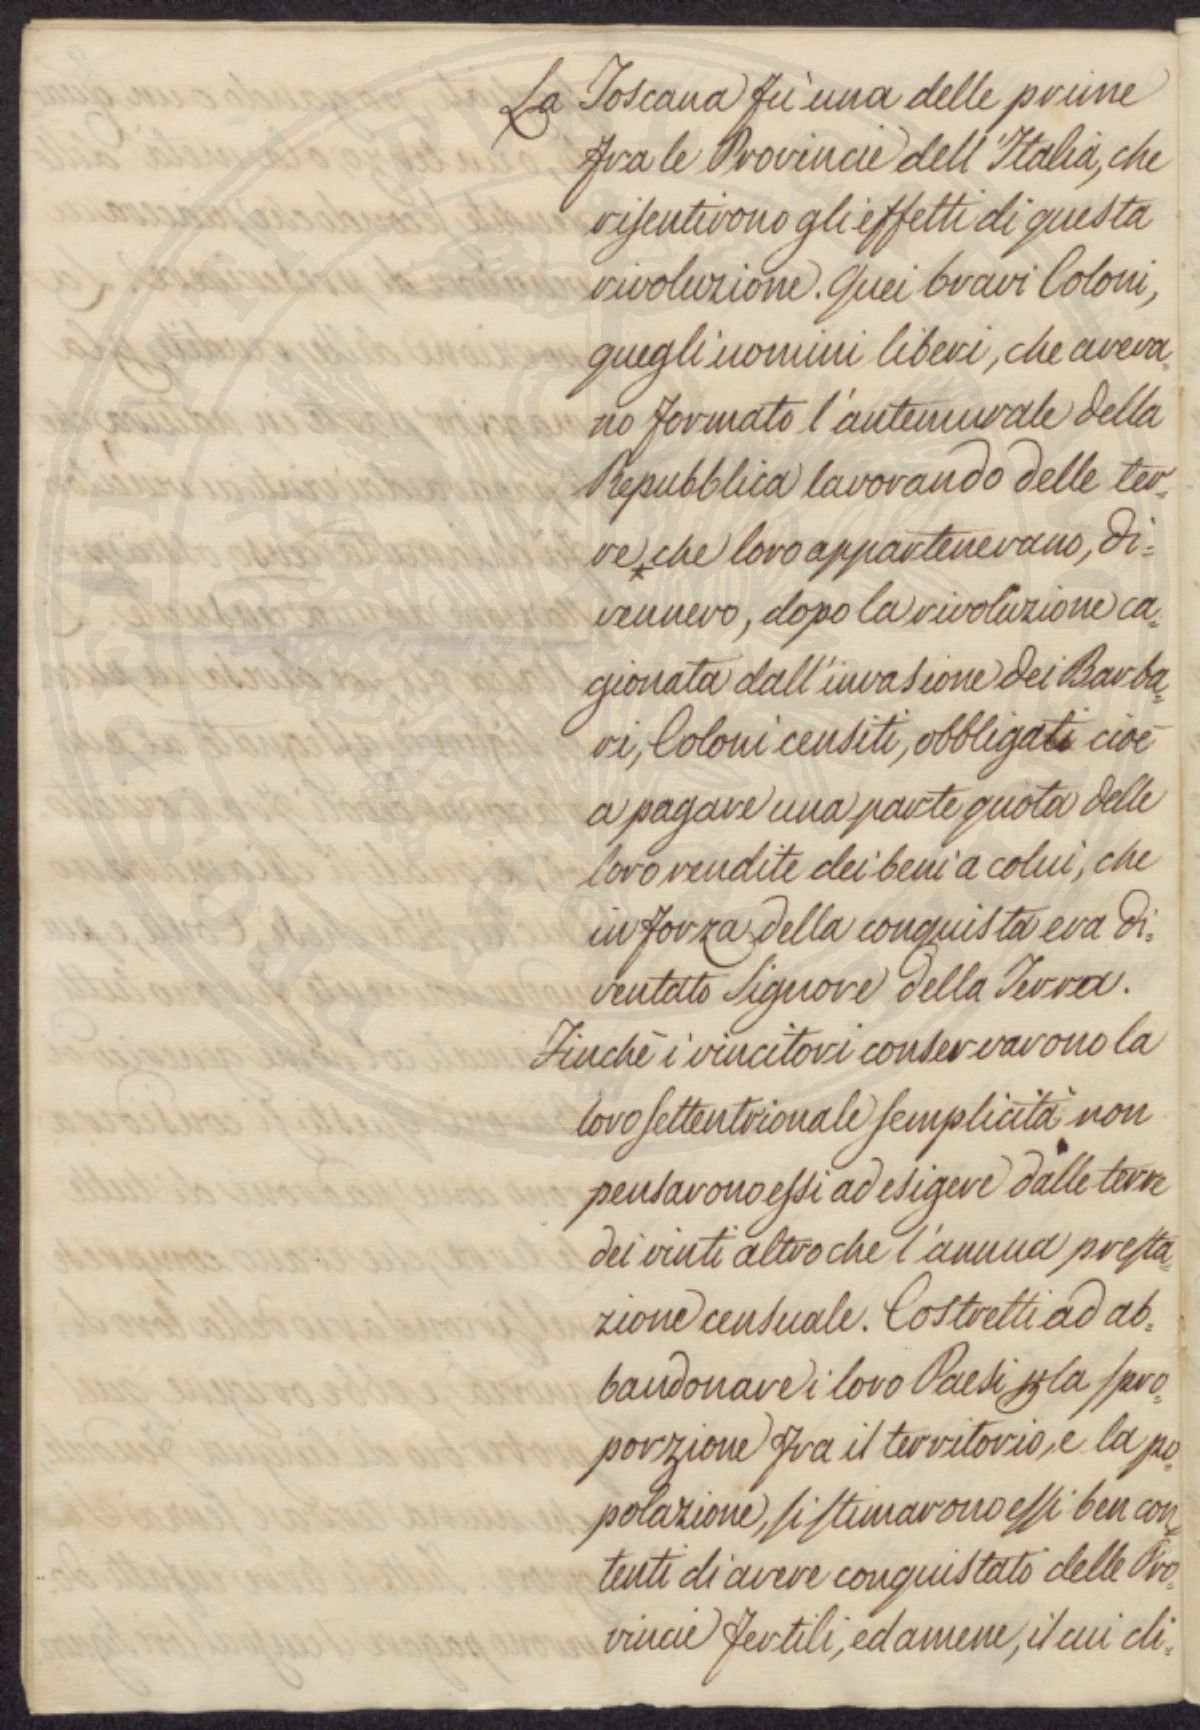 La Toscana fù una delle prime
fra le Provincie dell'Italia, che
risentirono gli effetti di questa
rivoluzione. Quei bravi Coloni,
quegli uomini liberi, che aveva=
no formato l'antemurale della
Repubblica lavorando delle ter=
re, che loro appartenevano, di=
vennero, dopo la rivoluzione ca=
gionata dall'invasione dei Barba=
ri, Coloni censiti, obbligati cioè
a pagare una parte quota delle
loro rendite dei beni a colui, che
in forza della conquista era di=
ventato Signore della Terra.
Finchè i vincitori conservarono la
loro settentrionale semplicità non
pensarono essi ad esigere dalle terre
dei vinti altro che l'annua presta=
zione censuale. Costretti ad ab=
bandonare i loro Paesi p la spro=
porzione fra il territorio, e la po=
polazione, si stimarono essi ben con=
tenti di avere conquistato delle Pro=
vincie fertili, ed amene, il cui cli=